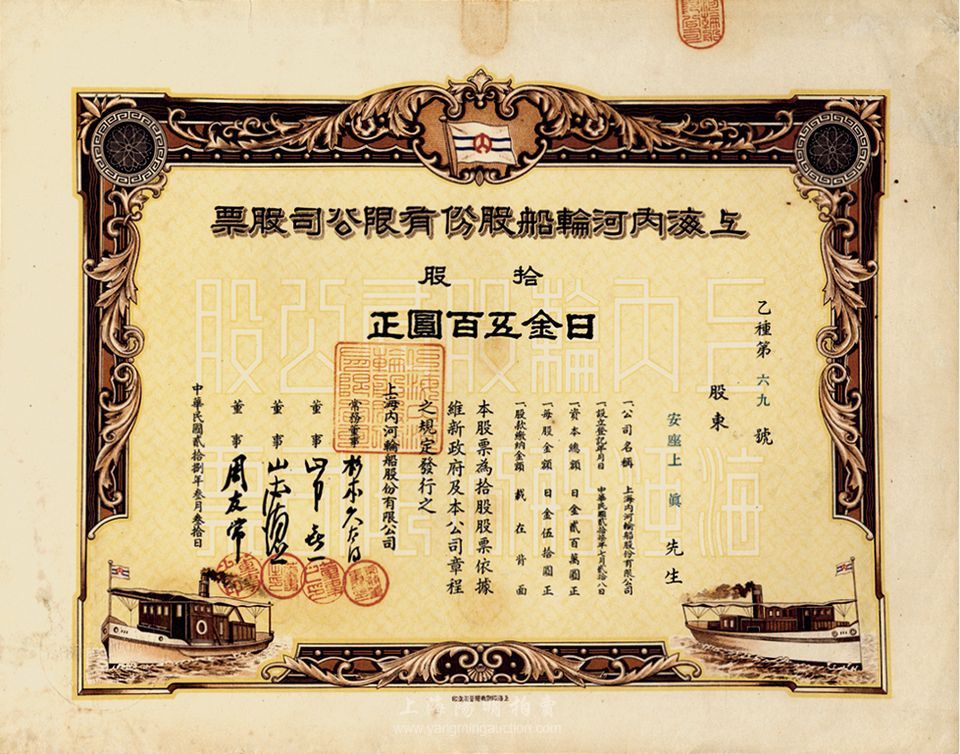 上海內河輪船股份有限公司股票
拾股
日金五百圓正
乙種第六九號
股東 安座上眞 先生
一公司名稱 上海內河輪船股份有限公司
一設立登記年月日 中華民國貳拾柒年七月貳拾八日
一資本總額 日金貳百萬圓正
一每股金額 日金伍拾圓正
一股款繳納金額 載在背面
本股票為拾股股票依據
維新政府及本公司章程
之規定發行之
上海內河輪船股份有限公司
常務董事
董事
董事
董事 周友常
中華民國貳拾捌年叁月叁拾日
上海陽明拍賣
www.yangmingauction.com